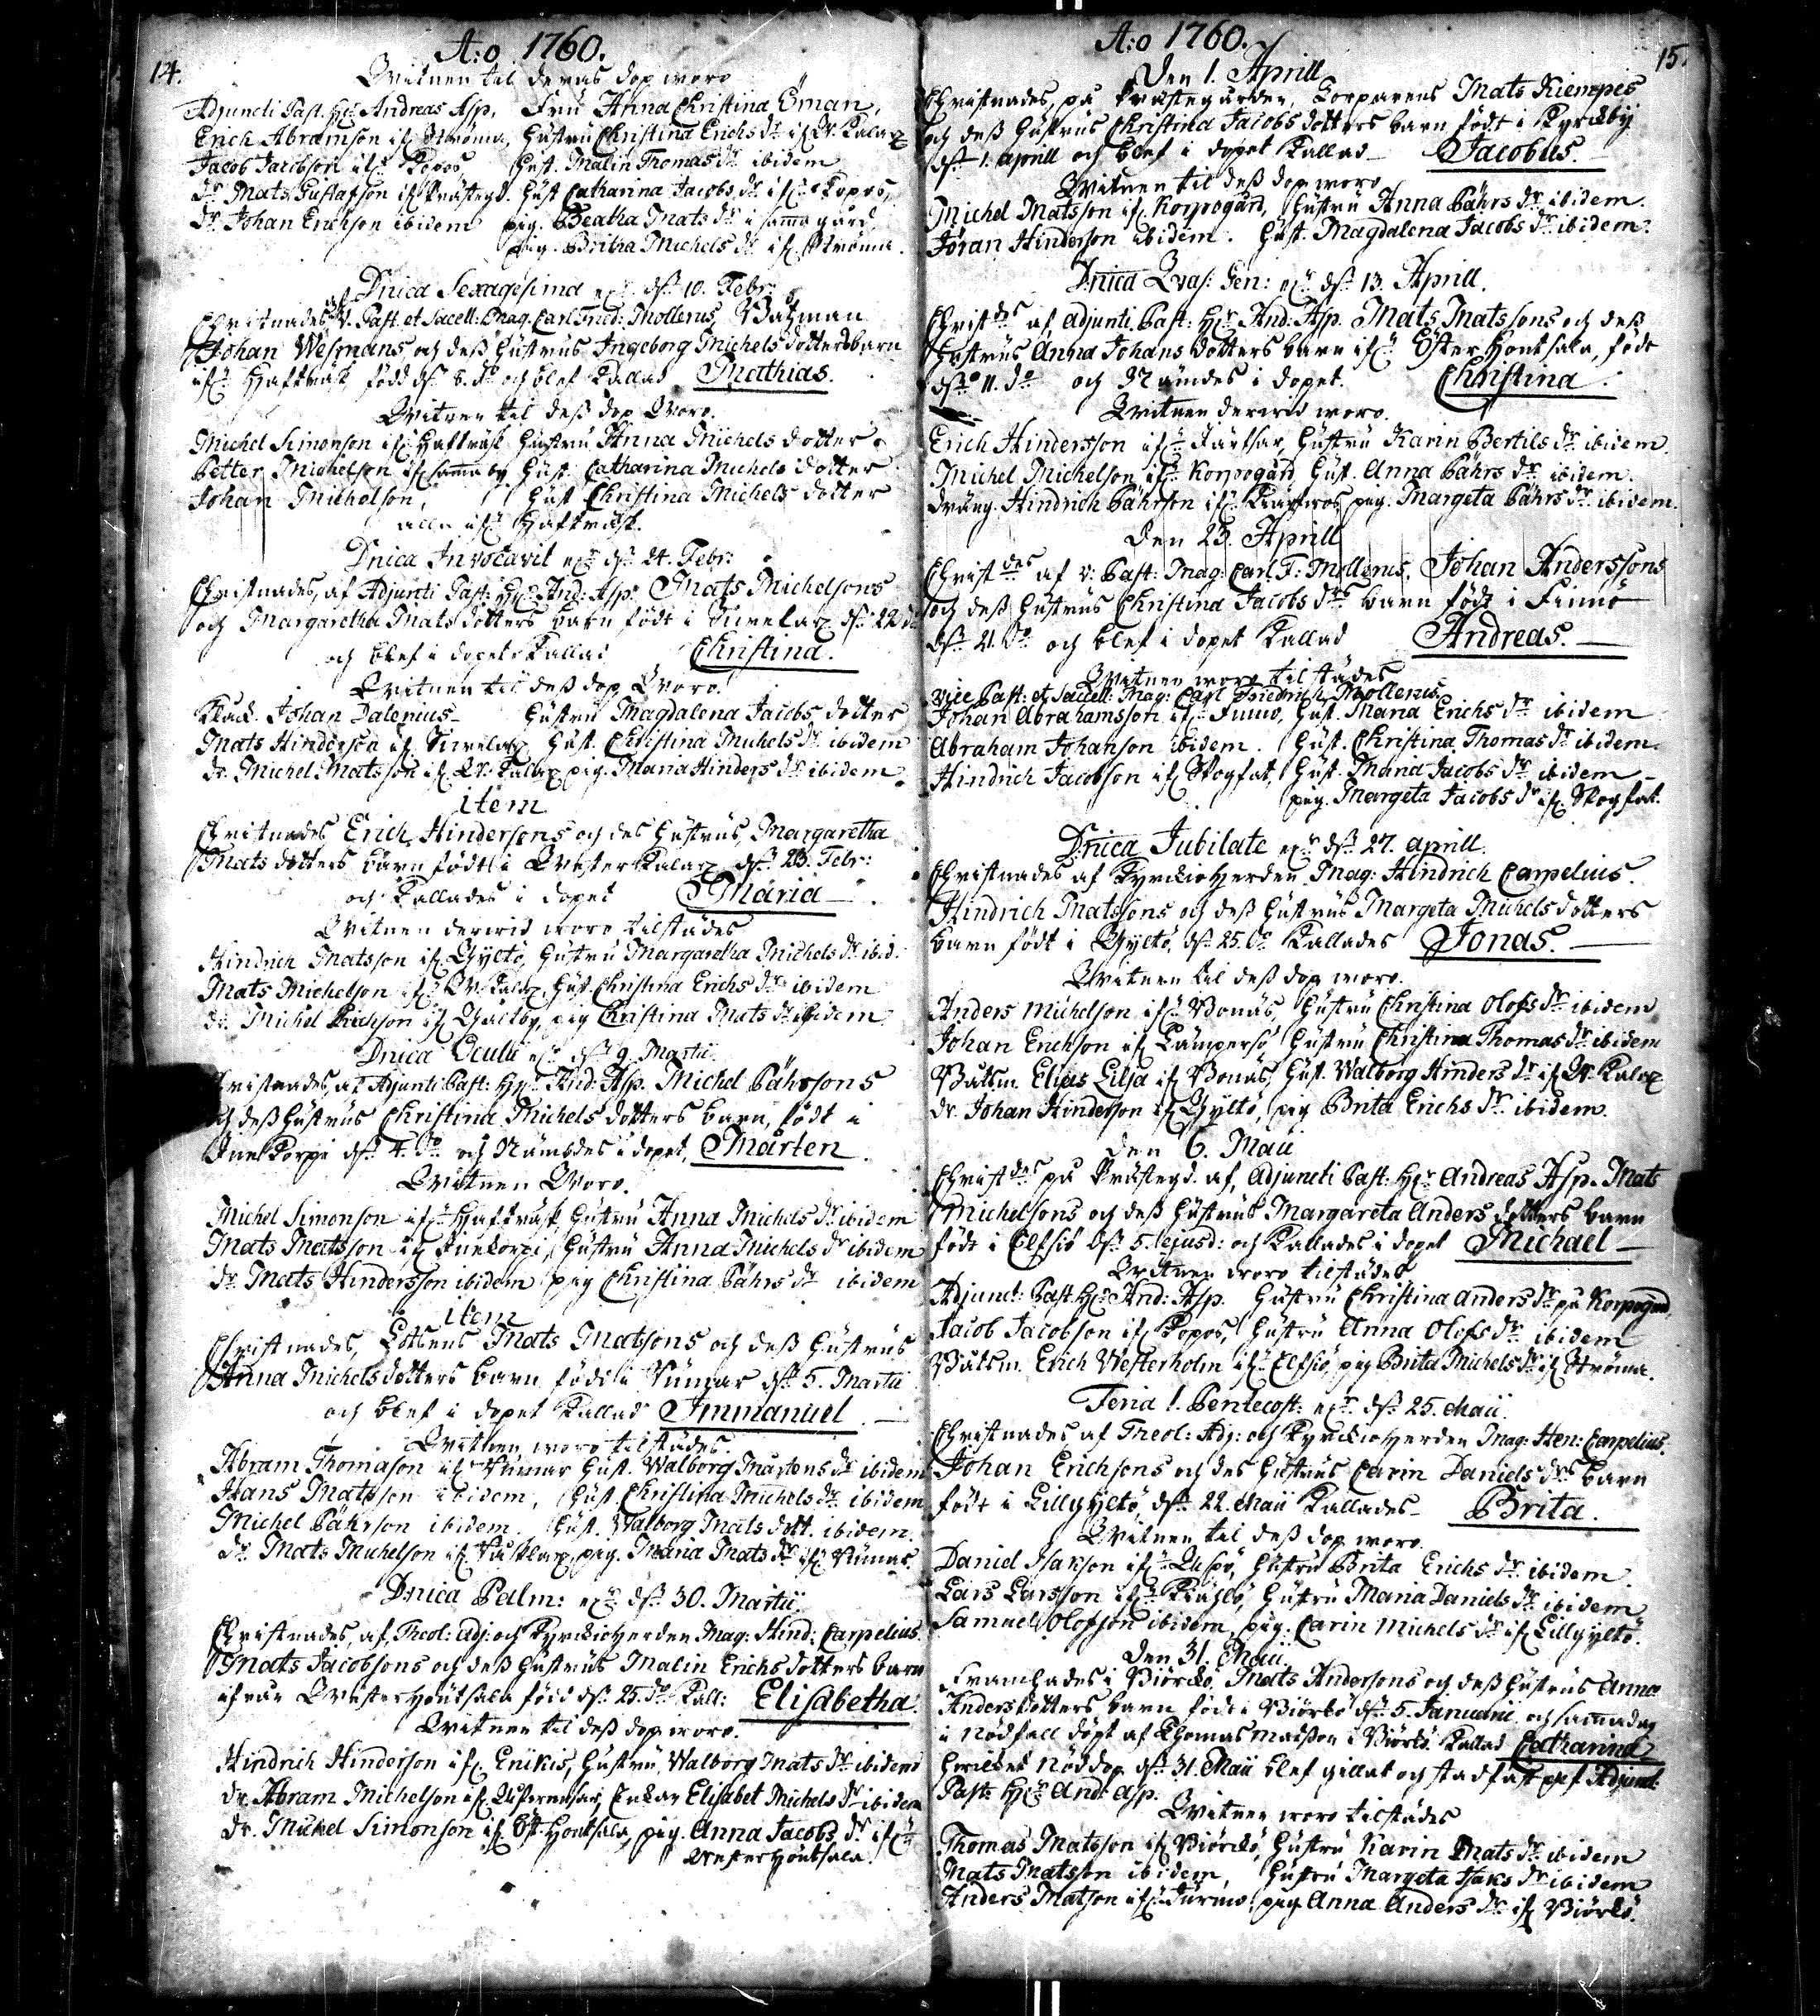 14.
A:o 1760.
Witnen til deras dop woro
Adjuncti Past. H:r Andreas Asp, Fru Anna Christina Öman,
Erich Abramson if: Ströma, Hustru Christina Erichs dr if: W. Kalax
Jacob Jacobson if: Kopos, Hust. Malin Thomas dr ibidem
dr. Mats Gustafson if: Prästegd. Hust Catharina Jacobs dr if: Kopos,
Dr. Johan Erichson ibidem pig. Beatha Mats dr i samma gård
pig. Britha Michels dr if: Ströma.
Dnica Sexagesima d: 10. Febr:
Christnades af V. Past. et Sacell: Mag. Carl Fried: Mollerus, Båtzman
Johan Wesmans och dess Hustrus Ingeborg Michels dotters barn
if: Hafträsk född d: 8. do och blef kallad Mathias.
Witnen til dess dop Woro.
Michel Simonson if: Hafträsk Hustru Anna Michels dotter
Petter Michelson if samma by Hust. Catharina Michels dotter
Johan Michelson, Hust Christina Michels dotter
alla if: Hafträsk.
Dnica Invocavit d: 24. Febr:
Christnades, af Adjuncti Past: H:r And: Asp. Mats Michelsons
och Margaretha Mats dotters barn födt i d: 22 do
och blef i dopet kallad Christina.
Witnen til dess dop Woro.
Klock. Johan Dalenius Hustru Magdalena Jacobs dotter
Mats Hinderson if: Hust. Christina Michels dr ibidem
dr. Michel Matsson if: W. Kalax pig. Maria Hinders dr ibidem
item
Christnades Erich Hindersons och des Hustrus, Margaretha
Mats dotters barn födt i Westerkalax d: 23. Febr:
och kallades i dopet Maria
Witnen derwid woro tilstädes
Hindrich Matsson if: Gyltö, Hustru Margaretha Michels dr ibid.
Mats Michelson if: W. Kalax, Hust. Christina Erichs dr ibidem
dr. Michel Erichson if: pig Christina Mats dr ibidem
Dnica Oculi d: 9. Martii
Christnades, af Adjuncti Past: H:r And: Asp. Michel Påhrsons
och dess Hustrus Christina Michels dotters barn, födt i
d: 4. do och Nämbdes i dopet, Mårten.
Witnen Woro.
Michel Simonson if: Hafträsk, Hustru Anna Michels dr ibidem
Mats Matsson if: Hustru Anna Michels dr ibidem
dr. Mats Hindersson ibidem pig Christina Påhrs dr ibidem
item
Christnades, Lotsens Mats Matsons och dess Hustrus
Anna Michels dotters barn, född i Rumar d: 5. Martii
och blef i dopet kallad Immanuel.
Witnen woro tilstädes.
Abram Thomason if: Rumar Hust. Walborg Mårtens dr ibidem
Hans Matsson ibidem, Hust. Christina Michels dr ibidem
Michel Påhrson ibidem. Hust. Walborg Mats dott. ibidem.
dr. Mats Michelson if: pig. Maria Mats dr if: Rumar.
Dnica Palm: d: 30. Martii.
Christnades, af, Theol: Adj: och Kyrckioherden Mag: Hind: Carpelius
Mats Jacobsons och dess Hustrus Malin Erichs dotters barn
ifrån Wester Hontsala föd d: 25. do Kall: Elisabetha.
Witnen til dess dop woro.
Hindrich Hinderson if: Enikis, Hustru, Walborg Mats dr ibidem
dr. Abram Michelson if: Enkan Elisabet Michels dr ibidem
dr. Michel Simonson if: Öst. Hontsala, pig. Anna Jacobs dr if:
Wester Hontsala.
15.
A:o 1760.
Den 1. Aprill
Christnades, på Prästegården, Torparens Mats Kiempes
och dess Hustrus Christina Jacobs dotters barn födt i Kyrckby
d: 1. aprill och blef i dopet kallad Jacobus.
Witnen til dess dop woro
Michel Matsson if: Korpogård, Hustru Anna Påhrs dr ibidem.
Jöran Hinderson ibidem. Hust. Magdalena Jacobs dr ibidem.
Dnica Qvas: Gen: d: 13. Aprill.
Christ:des af adjuncti Past: H:r And: Asp. Mats Matssons och dess
Hustrus Anna Johans dotters barn if: Öster Hontsala, född
d: 11. do och Nämdes i dopet. Christina.
Witnen derwid woro.
Erich Hindersson if: Hustru Karin Bertils dr ibidem.
Michel Michelson if: Korpogård, Hust. Anna Påhrs dr ibidem.
dräng. Hindrich Påhrson if: pig. Margeta Påhrs dr ibidem.
Den 23. Aprill
Christ:des af v: Past: Mag: Carl F: Mollerus. Johan Anderssons
och dess Hustrus Christina Jacobs drs barn födt i Finnö
d: 21. do och blef i dopet kallad Andreas.
Witnen woro tilstädes
Vice Past: et Sacell: Mag: Carl Friedrich Mollerus.
Johan Abrahamsson if: Finnö, Hust. Maria Erichs dr ibidem
Abraham Johanson ibidem. Hust. Christina Thomas dr ibidem.
Hindrich Jacobson if: Hust. Maria Jacobs dr ibidem
pig. Margeta Jacobs dr if:
Dnica Jubilate d: 27. aprill.
Christnades af Kyrckioherden Mag: Hindrich Carpelius.
Hindrich Matssons och dess Hustrus Margeta Michels dotters
barn födt i Gyltö, d: 25. do kallades Jonas.
Witnen til dess dop woro.
Anders Michelson if: Bonäs, Hustru Christina Olofs dr ibidem
Johan Erichson if: Lampersö Hustru Christina Thomas dr ibidem
Båtsm. Elias Lilja if: Bonäs, Hust. Walborg Hinders dr if: W. Kalax
dr. Johan Hinderson if: Gyltö, pig Brita Erichs dr ibidem.
Den 6. Maii
Christ:des på Prästegd. af, Adjuncti Past: H:r Andreas Asp. Mats
Michelsons och dess Hustrus Margareta Anders dotters barn
födt i Elfsiö d: 5. ejusd: och kallades i dopet Michael
Witnen woro tilstädes
Adjunct: Past. H:r And: Asp. Hustru Christina Anders dr på Korpogård,
Jacob Jacobson if: Kopos, Hustru Anna Olofs dr ibidem
Båtsm. Erich Westerholm if: Elfsiö pig Brita Michels dr if: Ströma.
Feria 1. Pentecost: d: 25. Maii.
Christnades af Theol: Adj: och Kyrckioherden Mag: Hen: Carpelius.
Johan Erichsons och des Hustrus Carin Daniels drs barn
födt i Lillgyltö d: 22. Maii kallades Brita.
Witnen til dess dop woro.
Daniel Isakson if: Hustru Brita Erichs dr ibidem.
Lars Larsson if: Hustru Maria Daniels dr ibidem
Samuel Olofson ibidem, pig. Carin Michels dr if: Lillgyltö.
Den 31. Maii.
i Biörkö, Mats Andersons och dess Hustrus Anna
Anders dotters barn födt i Biörkö d: 5. Januarii och samma dag
i nödfall döpt af Thomas Matsson i Biörkö kallad Catharina
hwilcket Nöddop d: 31. Maii blef gillat och stadfäst af Adjunct:
Past: H:r And: Asp.
Witnen woro tilstädes
Thomas Matsson if: Biörkö, Hustru Karin Mats dr ibidem
Mats Matsson ibidem, Hustru Margeta Isaks dr ibidem
Anders Matson if: Jurmo, pig. Anna Anders dr if: Biörkö.